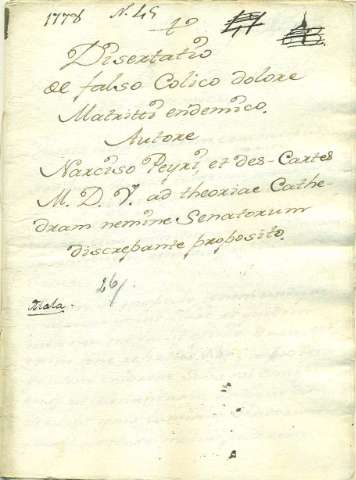 1778 N. 45
Disertatio
de falso Colico dolore
Matriti endemico.
Autore
Narciso Peyri, et des-Cartes
M. D. V. ad theoriae Cathe-
dram nemine Senatorum
discrepante proposito.
26/
Mala.